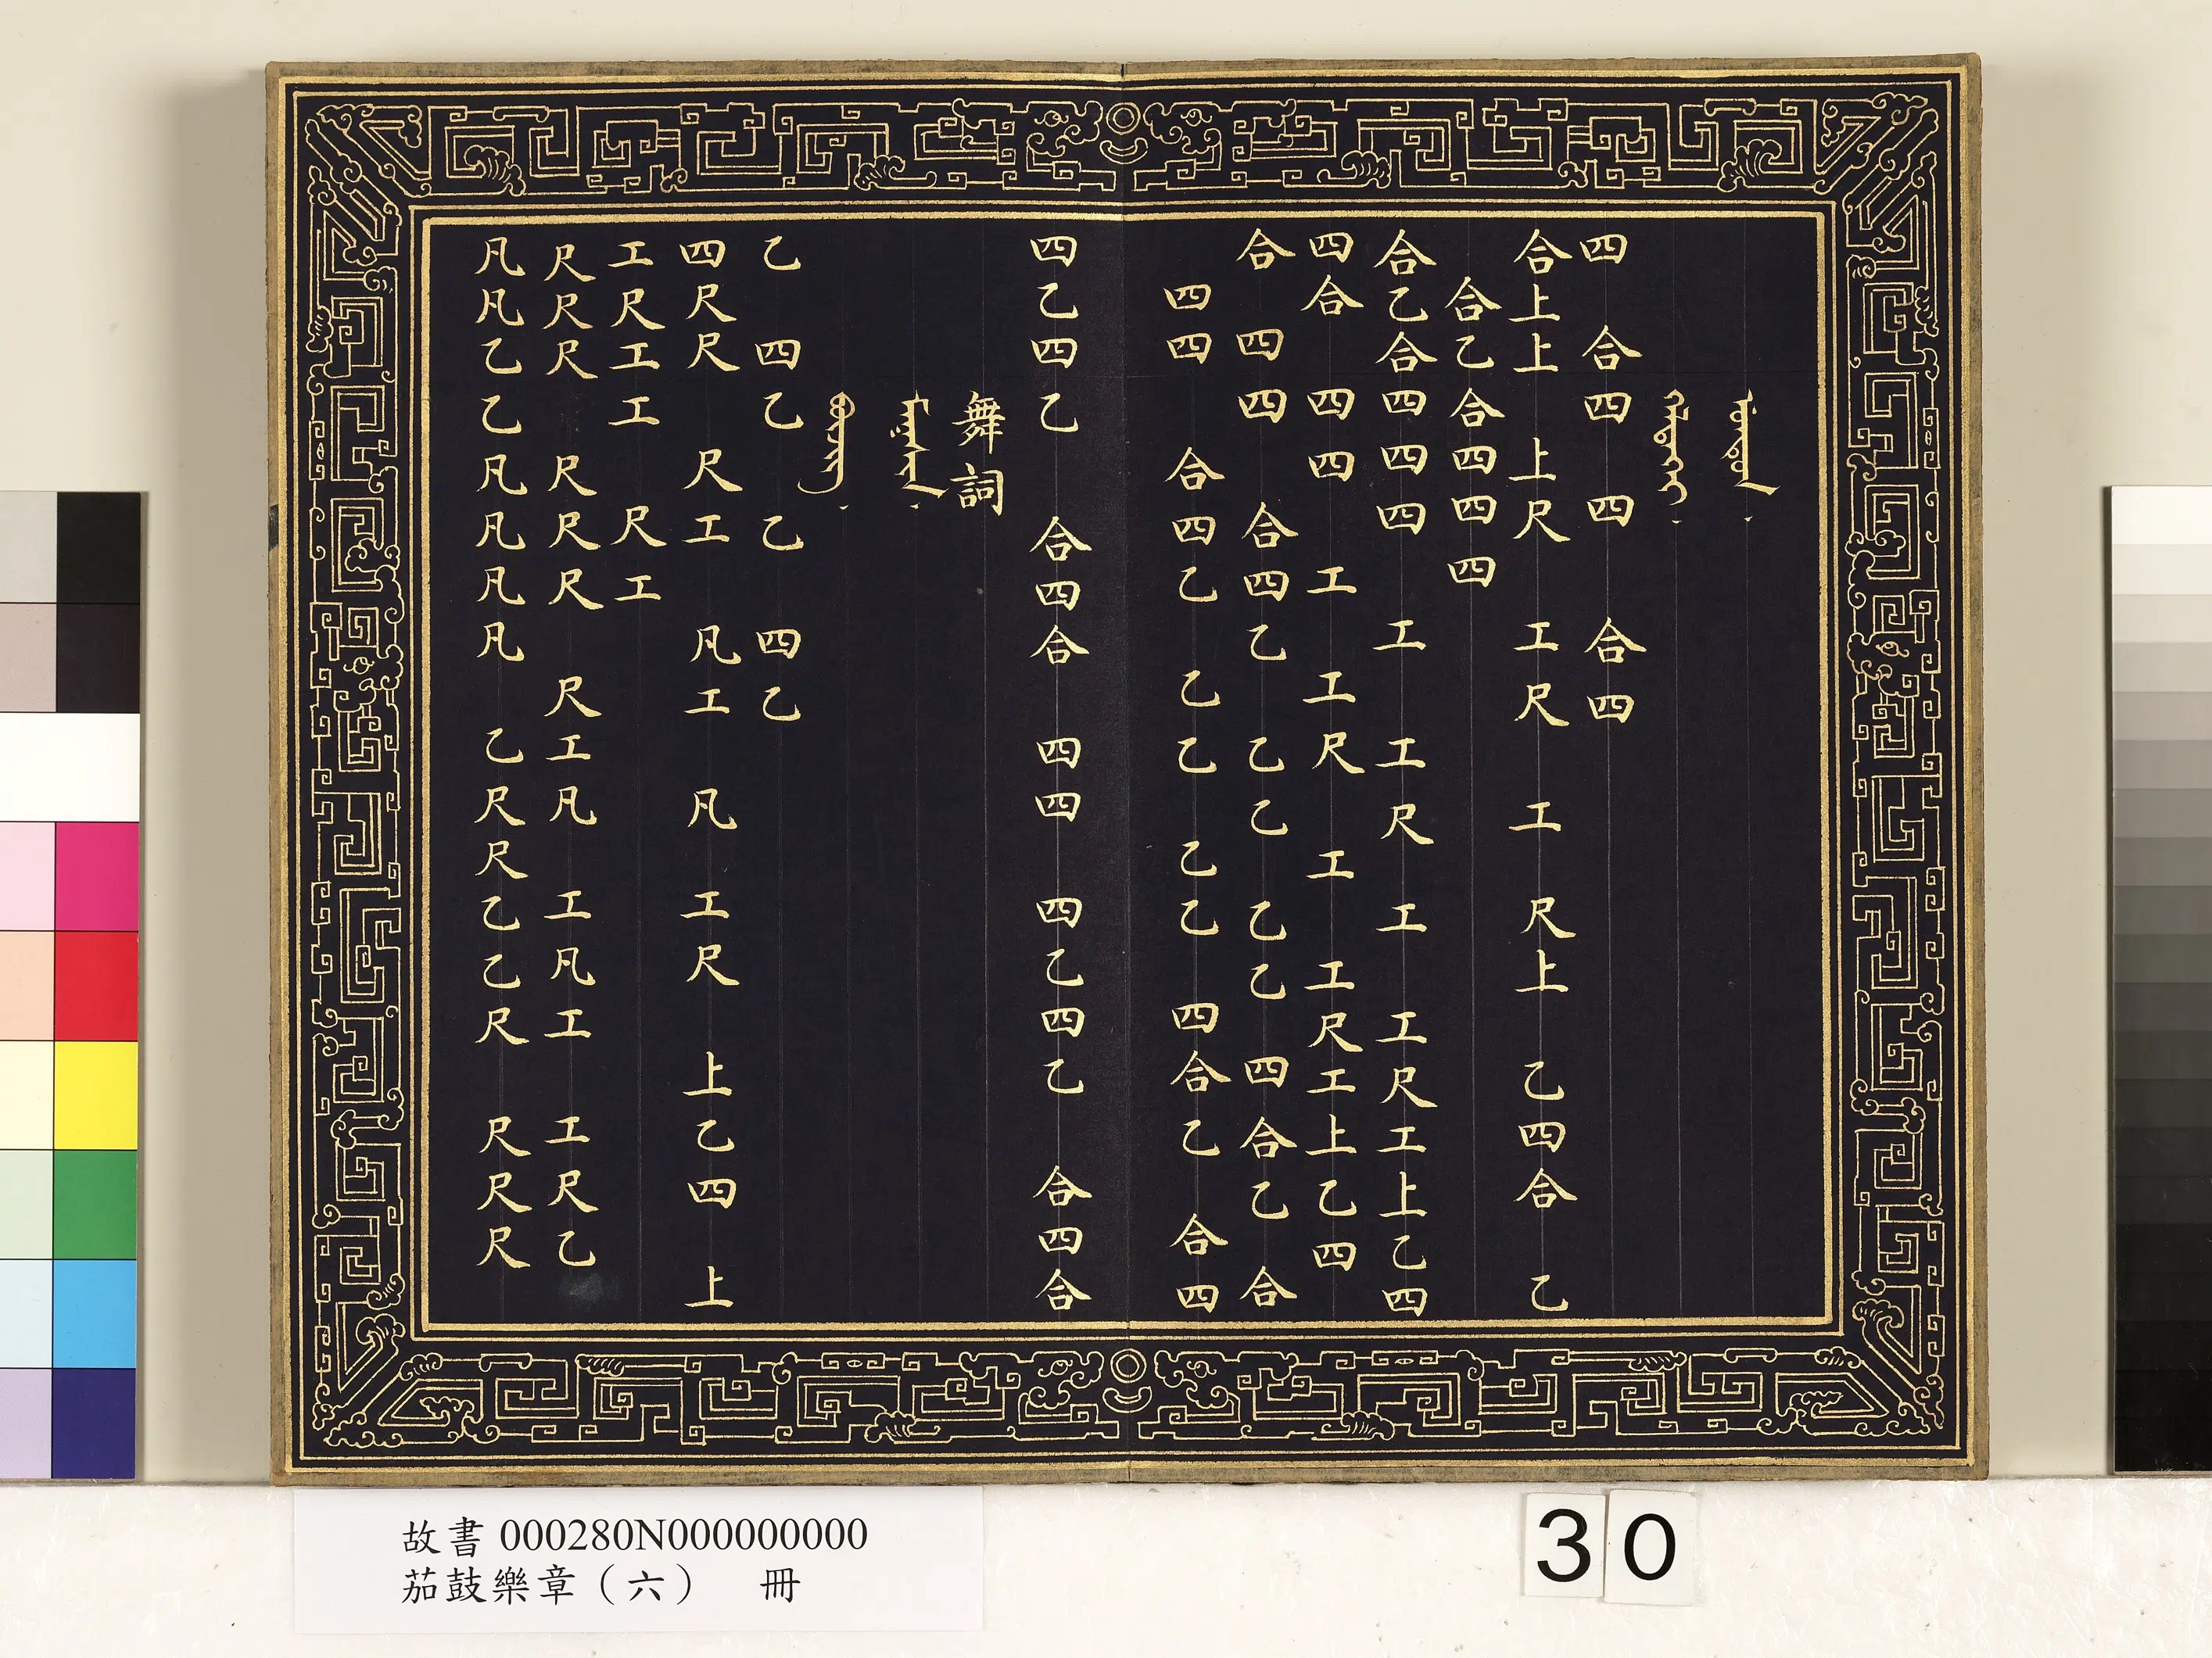 四 合四 四 合四
合上上 上尺 工尺 工 尺上 乙四合 乙
合乙合四四四
合乙合四四四 工 工尺 工 工尺工上乙四
四合 四四 工 工尺 工 工尺工上乙四
合 四四 合四乙 乙乙 乙乙 四合乙 合
四四 合四乙 乙乙 乙乙 四合乙 合四
四乙四乙 合四合 四四 四乙四乙 合四合
舞詞
乙 四乙 乙 四乙
四尺尺 尺工 凡工 凡 工尺 上乙四 上
工尺工工 尺工
尺尺尺 尺尺尺 尺工凡 工凡工 工尺乙
凡凡乙乙凡凡凡凡 乙尺尺乙乙尺 尺尺尺
故書 000280N000000000
茄鼓樂章（六） 冊
30